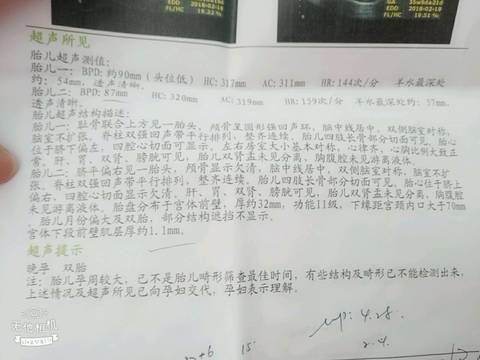 GA 35w6d±2d
EDD EDD 2018-02-18
FL/HC 19.32 % FL/HC 19.51 %
超声所见
胎儿超声测值:
胎儿一: BPD: 约90mm (头位低) HC: 317mm AC: 311mm HR: 144次/分 羊水最深处
约: 54mm, 透声清晰.
胎儿二: BPD: 87mm HC: 320mm AC: 319mm HR: 159次/分 羊水最深处约: 57mm,
透声清晰.
胎儿超声结构描述:
胎儿一: 耻骨联合上方见一胎头, 颅骨呈圆形强回声环, 脑中线居中, 双侧脑室对称,
脑室不扩张, 脊柱双强回声带平行排列, 整齐连续, 胎儿四肢长骨部分切面可见, 胎心
位于脐下偏左, 四腔心切面可显示, 左右房室大小基本对称, 心律齐, 心胸比例大致正
常, 肝, 胃, 双肾, 膀胱可见, 胎儿双肾盂未见分离, 胸腹腔未见游离液体.
胎儿二: 脐平偏右见一胎头, 颅骨显示欠清, 脑中线居中, 双侧脑室对称, 脑室不扩
张, 脊柱双强回声带平行排列, 整齐连续, 胎儿四肢长骨部分切面可见, 胎心位于脐上
偏右, 四腔心切面显示欠清, 肝, 胃, 双肾, 膀胱可见, 胎儿双肾盂未见分离, 胸腹腔
未见游离液体, 胎盘分布于宫体前壁, 厚约32mm, 功能II级, 下缘距宫颈内口大于70mm
, 胎儿月份偏大及双胎, 部分结构遮挡不显示.
宫体下段前壁肌层厚约1.1mm.
超声提示
晚孕 双胎
注: 胎儿孕周较大, 已不是胎儿畸形筛查最佳时间, 有些结构及畸形已不能检测出来,
上述情况及超声所见已向孕妇交代, 孕妇表示理解.